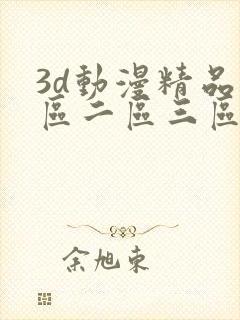 3d動漫精品
區二區三區
余旭東